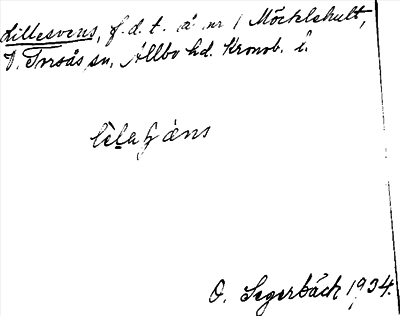 Lillesvens, f.d.t. å nr 1 Möcklehult,
V. Torsås sn, Allbo hd. Kronob. l.
O. Segerbäck 1934.